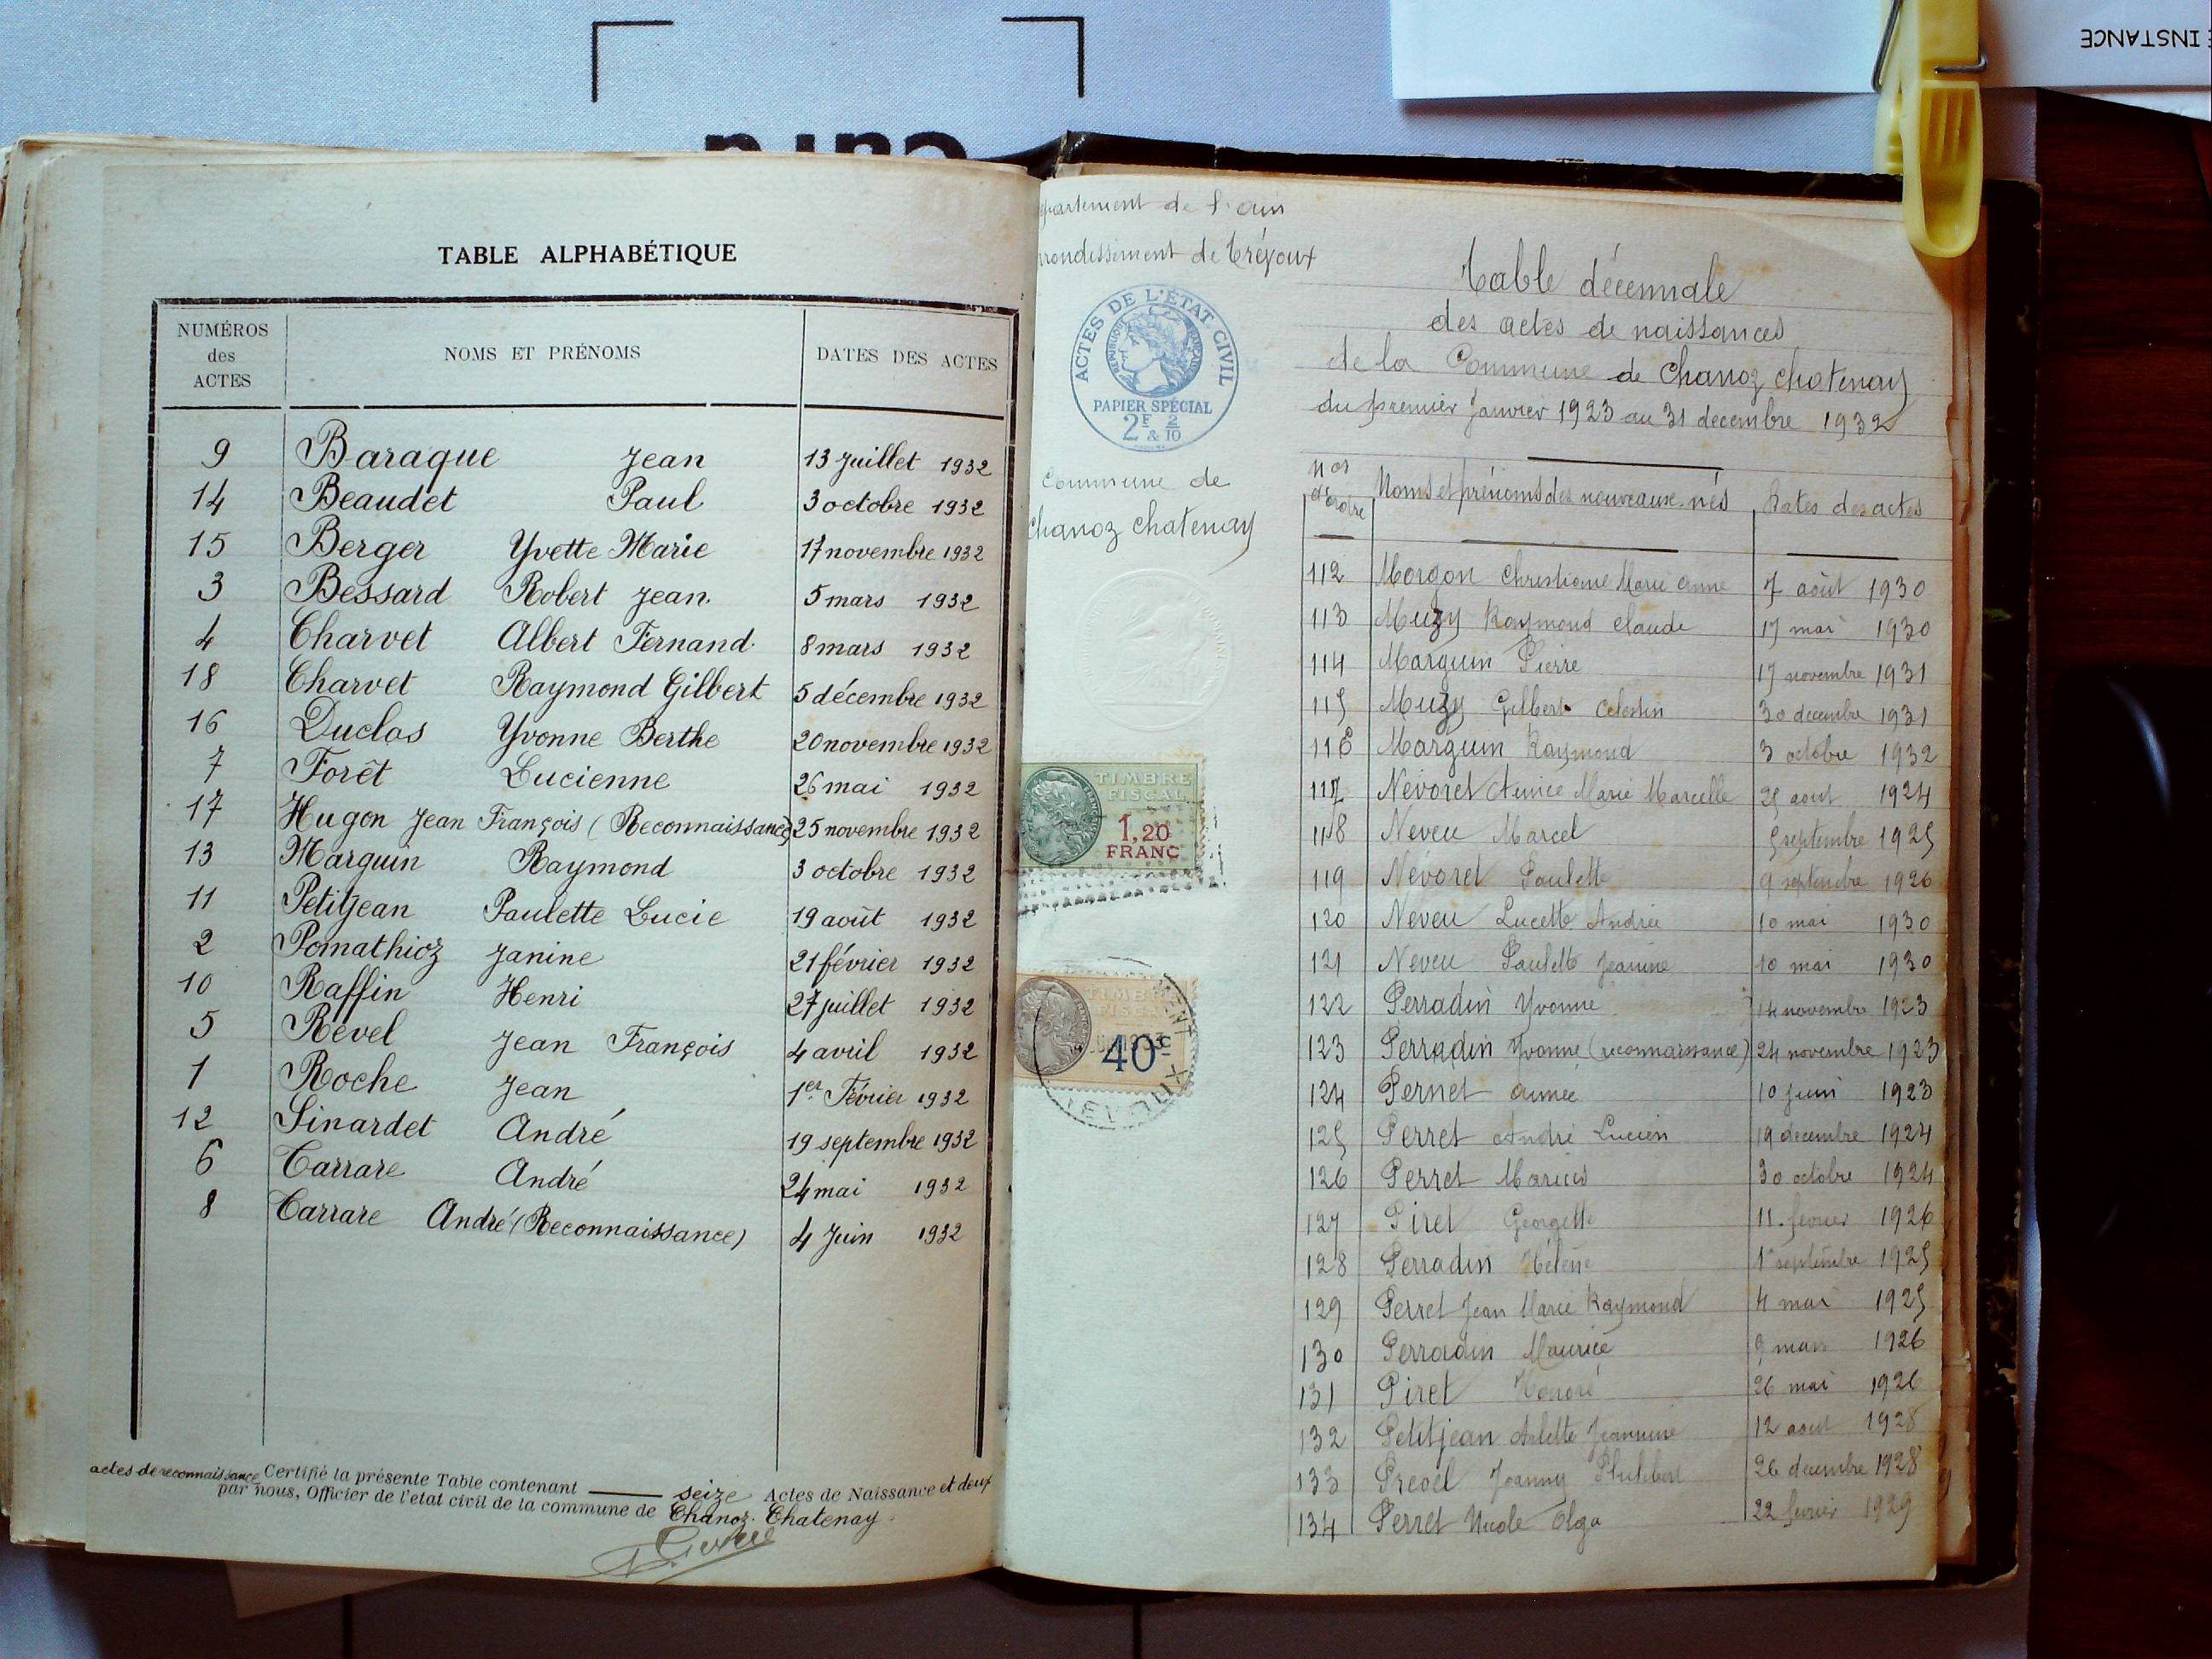 INSTANCE
TABLE ALPHABÉTIQUE
NUMÉROS des ACTES NOMS ET PRÉNOMS DATES DES ACTES
9 Baraque Jean 13 Juillet 1932
14 Beaudet Paul 3 octobre 1932
15 Berger Yvette Marie 17 novembre 1932
3 Bessard Robert Jean. 5 mars 1932
4 Charvet Albert Fernand. 8 mars 1932
18 Charvet Raymond Gilbert 5 décembre 1932
16 Duclos Yvonne Berthe 20 novembre 1932
7 Forêt Lucienne 26 mai 1932
17 Hugon Jean François (Reconnaissance) 25 novembre 1932
13 Marguin Raymond 3 octobre 1932
11 Petitjean Paulette Lucie 19 août 1932
2 Pomathioz Janine 21 février 1932
10 Raffin Henri 27 juillet 1932
5 Revel Jean François 4 avril 1932
1 Roche Jean 1er Février 1932
12 Sinardet André 19 septembre 1932
6 Carrare André 24 mai 1932
8 Carrare André (Reconnaissance) 4 Juin 1932
actes de reconnaissance Certifié la présente Table contenant seize Actes de Naissance et deux
par nous, Officier de l'etat civil de la commune de Chanoz-Chatenay.
partement de l'ain
rrondissement de Trévoux
ACTES DE L'ÉTAT CIVIL
PAPIER SPÉCIAL
2F & 2/10
Commune de
Chanoz Chatenay
TIMBRE
FISCAL
1,20
FRANC
TIMBRE
FISCAL
40c
Table décennale
des actes de naissances
de la Commune de Chanoz Chatenay
du premier Janvier 1923 au 31 decembre 1932
Nos d'ordre Noms et prénoms des nouveaux-nés Dates des actes
112 Morgon Christiane Marie Anne 7 août 1930
113 Muzy Raymond Claude 17 mai 1930
114 Marguin Pierre 17 novembre 1931
115 Muzy Gilbert Celestin 30 decembre 1931
116 Marguin Raymond 3 octobre 1932
117 Nevoret Marie Marcelle 25 aout 1924
118 Neveu Marcel 5 septembre 1925
119 Névoret Paulette 9 septembre 1926
120 Neveu Lucette Andrée 10 mai 1930
121 Neveu Paulette Jeanine 10 mai 1930
122 Perradin Yvonne 14 novembre 1923
123 Perradin Yvonne (reconnaissance) 24 novembre 1923
124 Pernet aimée 10 juin 1923
125 Perret André Lucien 19 decembre 1924
126 Perret Marius 30 octobre 1924
127 Piret Georgette 11 fevrier 1926
128 Perradin Hélène 1er septembre 1925
129 Perret Jean Marie Raymond 4 mai 1925
130 Perradin Maurice 9 mars 1926
131 Piret Honoré 26 mai 1926
132 Petitjean Arlette Jeannine 12 aout 1928
133 Preoel Joanny Philibert 26 decembre 1928
134 Perret Nicole Olga 22 fevrier 1929